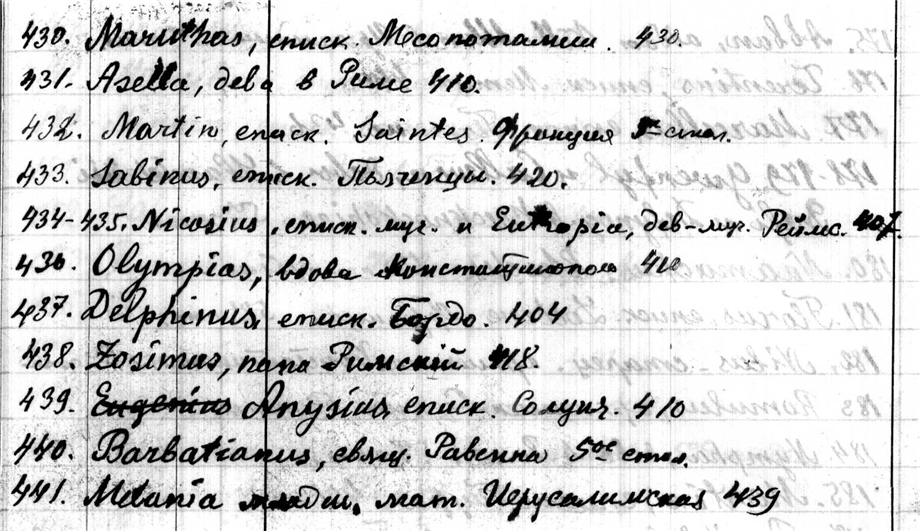 430. Maruthas, еписк. Месопотамии. 430.
431. Asella, дева в Риме 410.
432. Martin, еписк. Saintes. Франция 5ое стол.
433. Sabinus, еписк. Пьяченцы. 420.
434-435. Nicasius, еписк. муч. и Eutropia, дев-муч. Реймс. 407.
436. Olympias, вдова Константинополь 410
437. Delphinus, еписк. Бордо. 404
438. Zosimus, папа Римский 418.
439. Eugenius Anysius, еписк. Солунч. 410
440. Barbatianus, свящ. Равенна 5ое стол.
441. Melania младш. мат. Иерусалимская 439